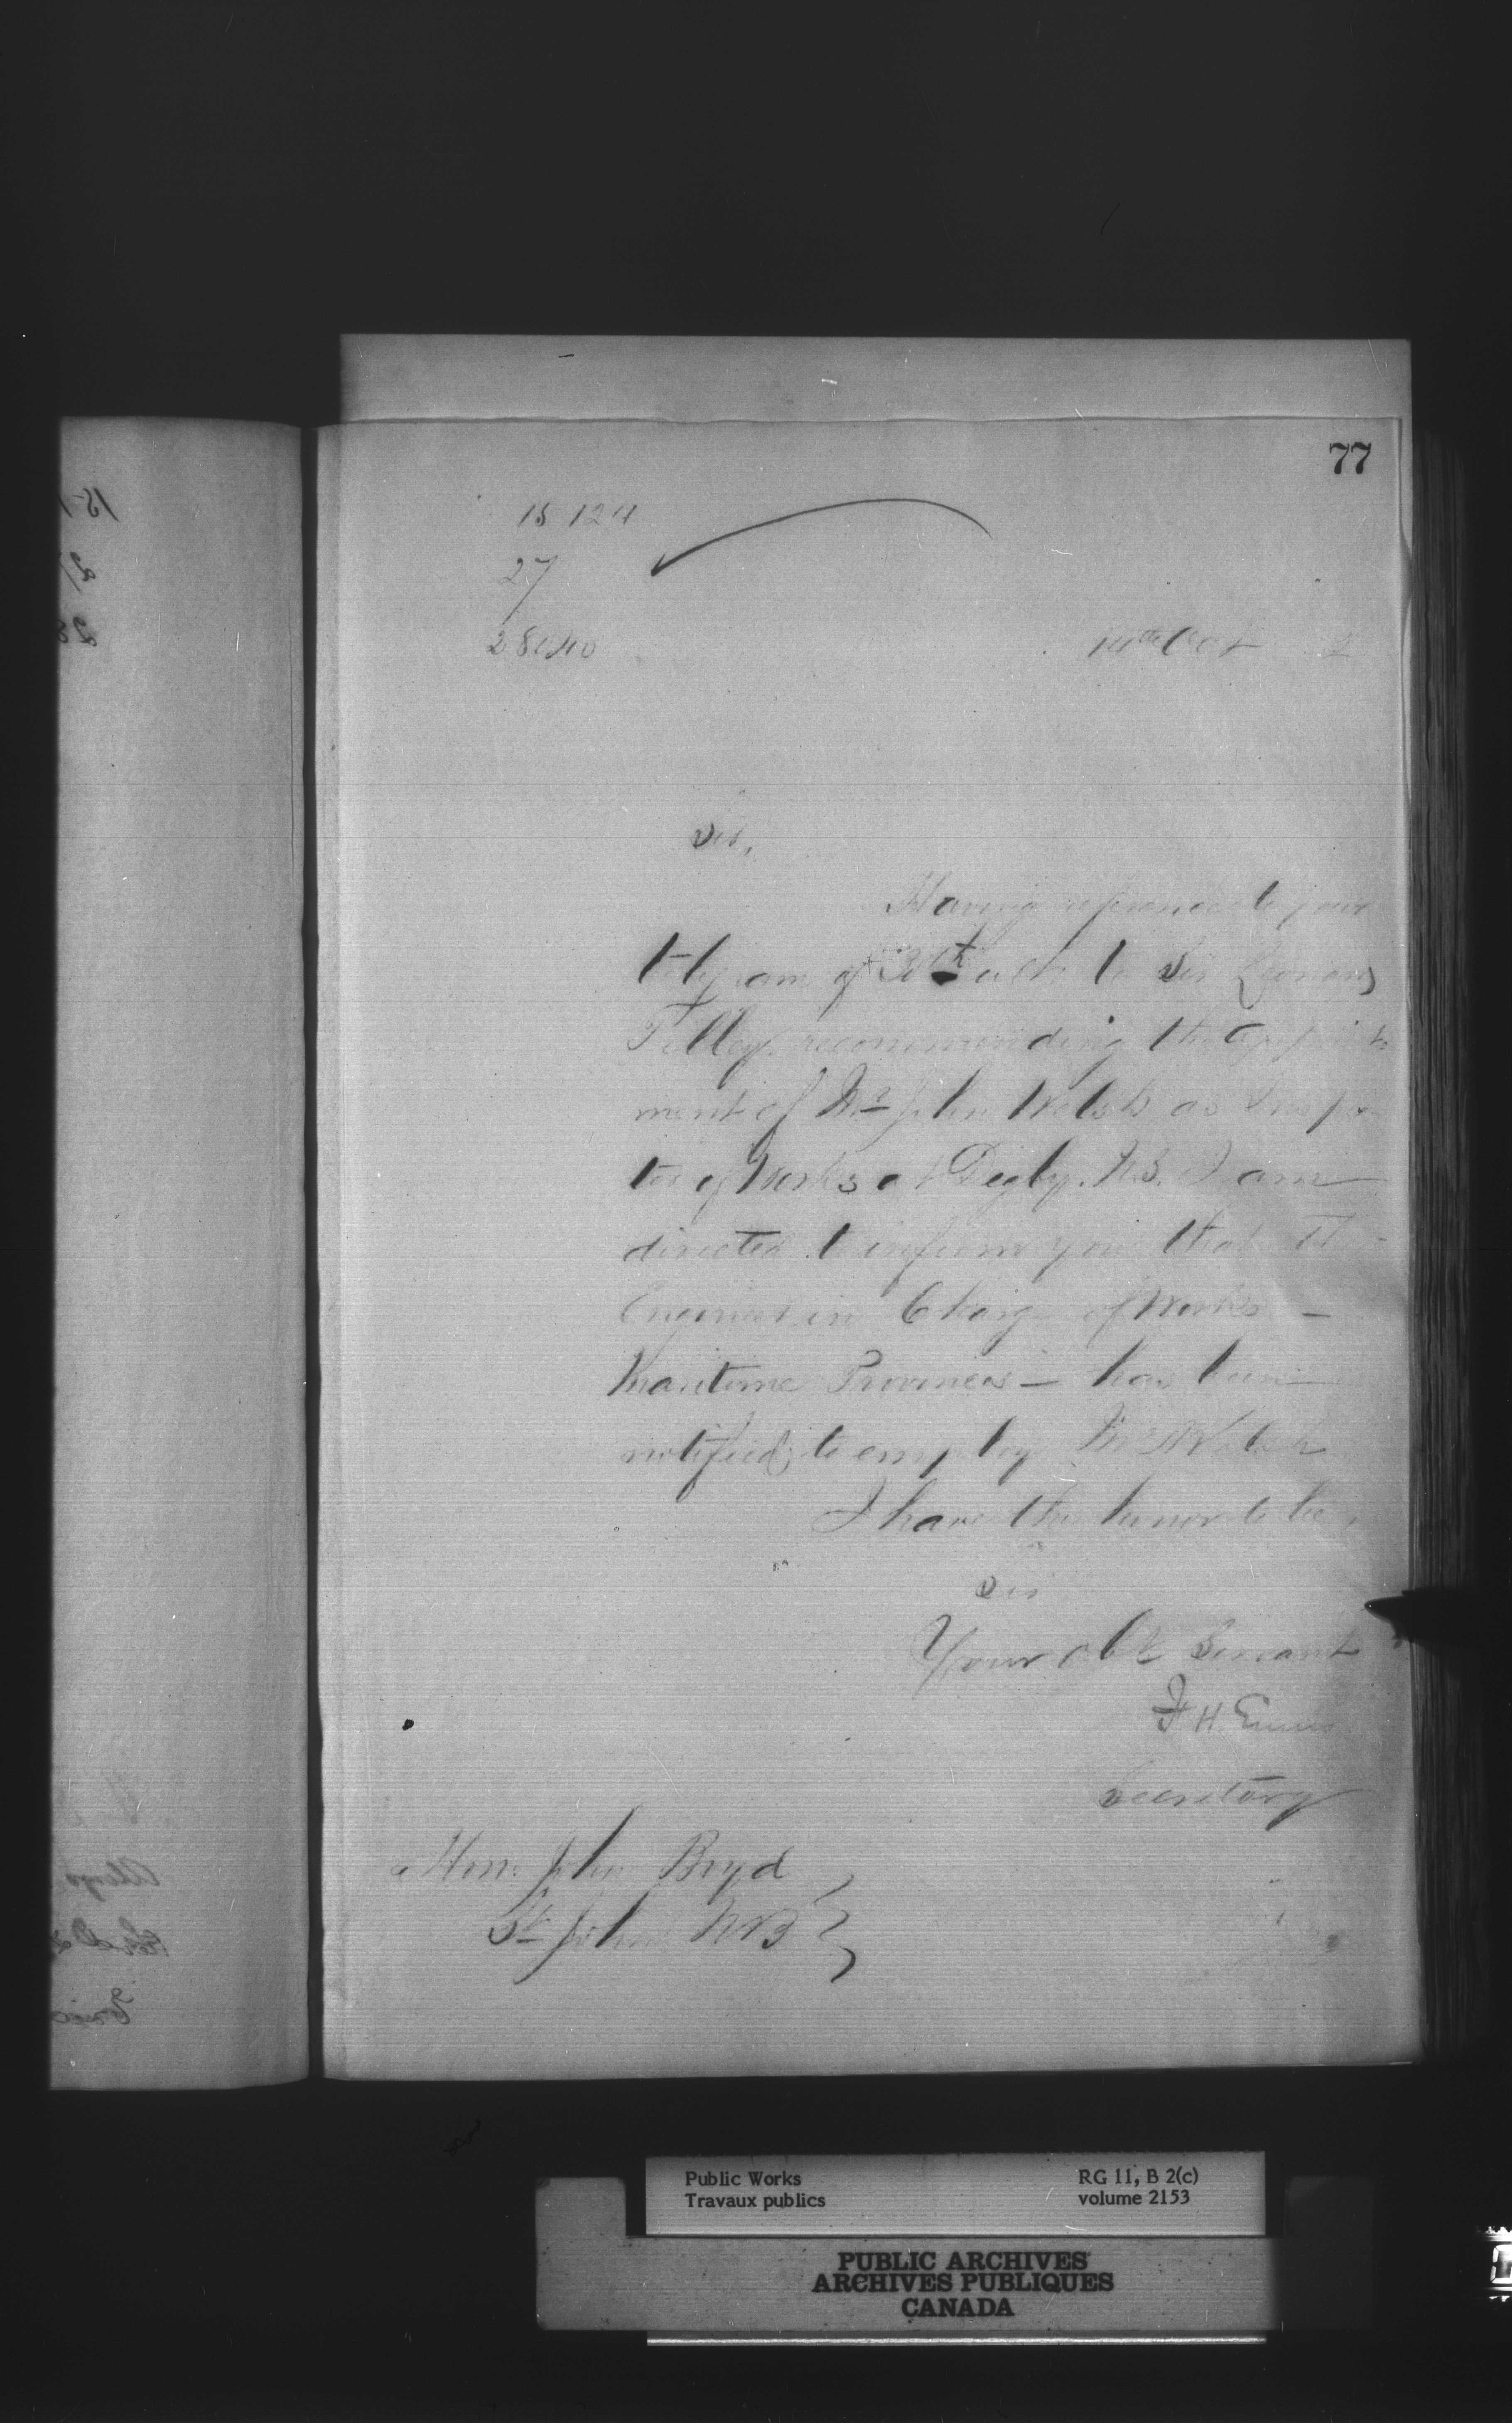 77
15124
27
28440
14th Oct 2
Sir,
Having reference to your
telegram of 30th ulto to Sir Leonard
Tilley recommending the appoint
ment of Mr John Welsh as Inspec
tor of Works at Digby. N.S. I am
directed to inform you that the
Engineer in Charge of Works –
Maritime Provinces – has been
notified to employ Mr Welsh
I have the honor to be,
Sir
Your obt Servant
F H Ennis
Secretary
Hon. John Boyd
St John NB
Public Works
Travaux publics
RG 11, B 2(c)
volume 2153
PUBLIC ARCHIVES
ARCHIVES PUBLIQUES
CANADA